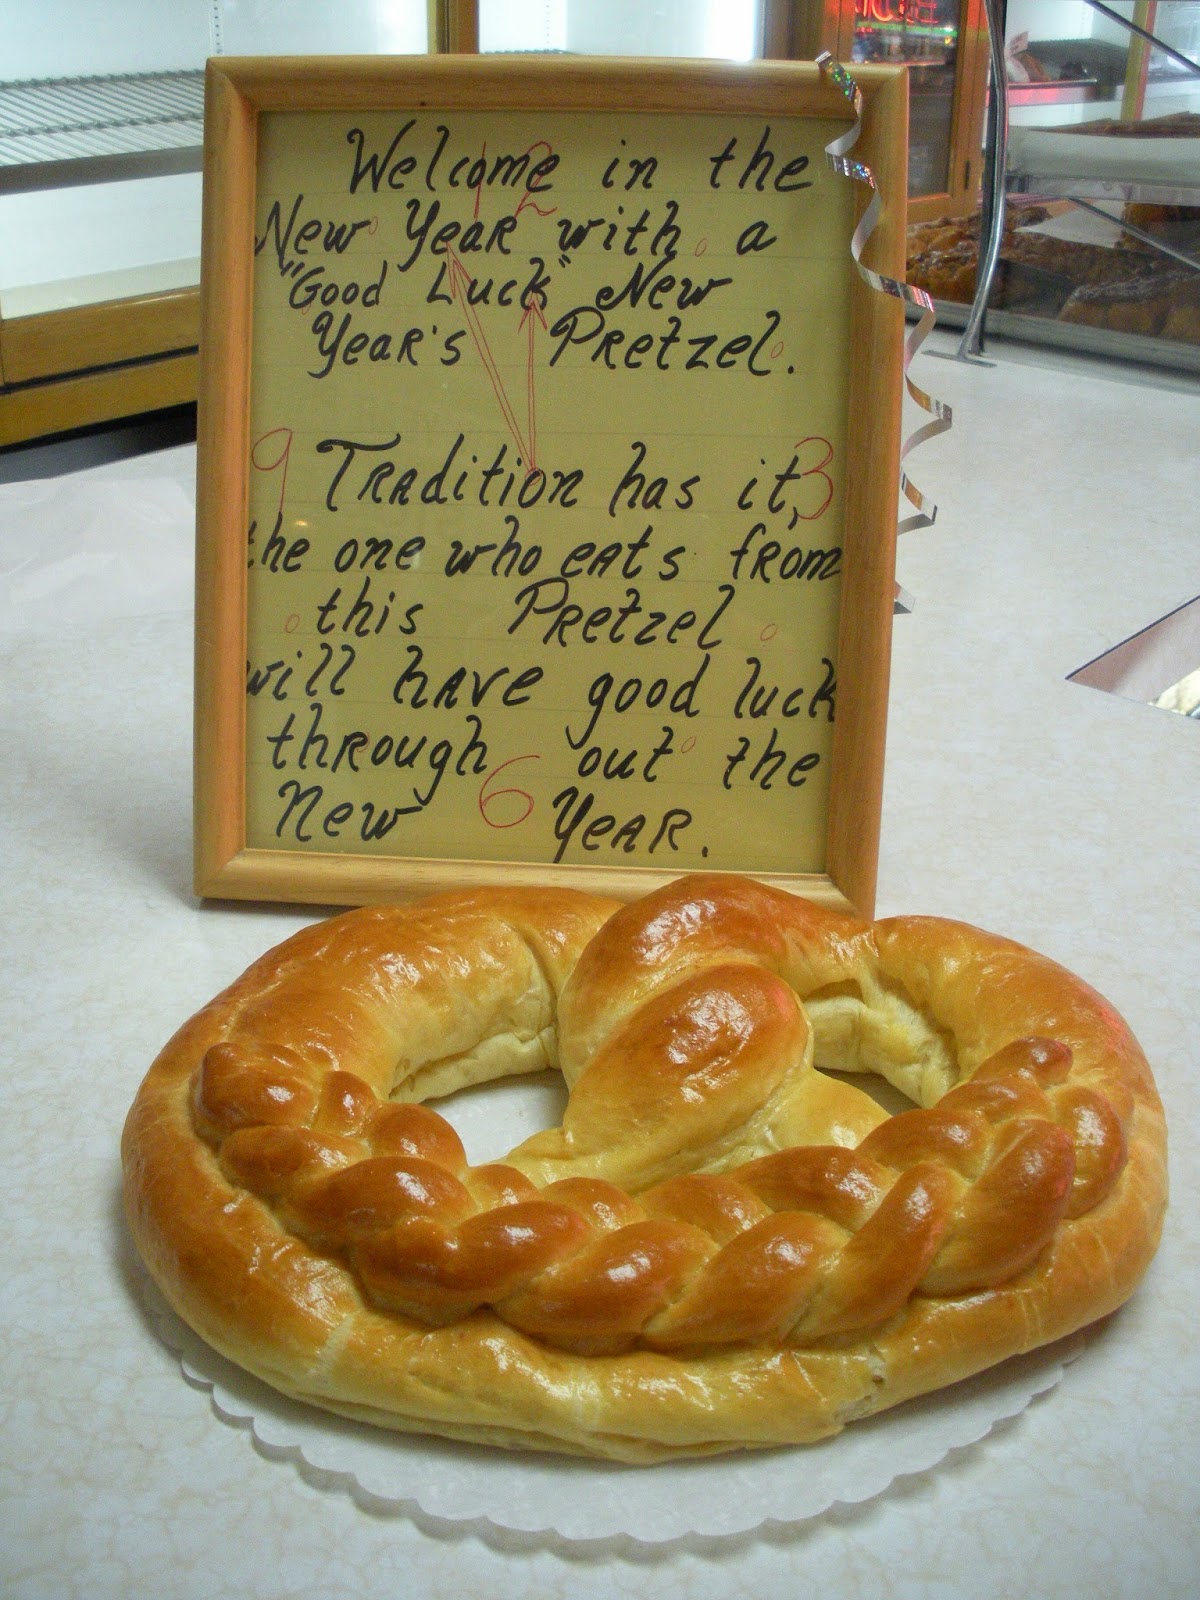 Welcome in the
New Year with a
"Good Luck" New
Year's Pretzel.
12
9
3
Tradition has it,
the one who eats from
this Pretzel
will have good luck
through out the
New Year.
6